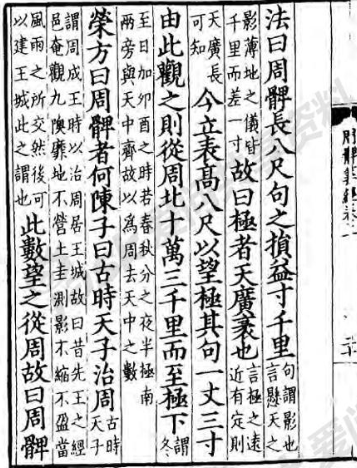 法曰周髀長八尺句之損益寸千里
句謂影也
言懸天之
影薄地之儀皆
千里而差一寸
故曰極者天廣袤也
言極之遠
近有定則
天廣長
可知
今立表高八尺以望極其句一丈三寸
由此觀之則從周北十萬三千里而至極下
謂
冬
至日加卯酉之時若春秋分之夜半極南
兩旁與天中齊故以為周去天中之數
榮方曰周髀者何陳子曰古時天子治周
古時
天子
謂周成王時以治周居王城故曰昔先王之經
邑奄觀九隩靡地不營土圭測影不縮不盈當
風雨之所交然後可
以建王城此之謂也
此數望之從周故曰周髀